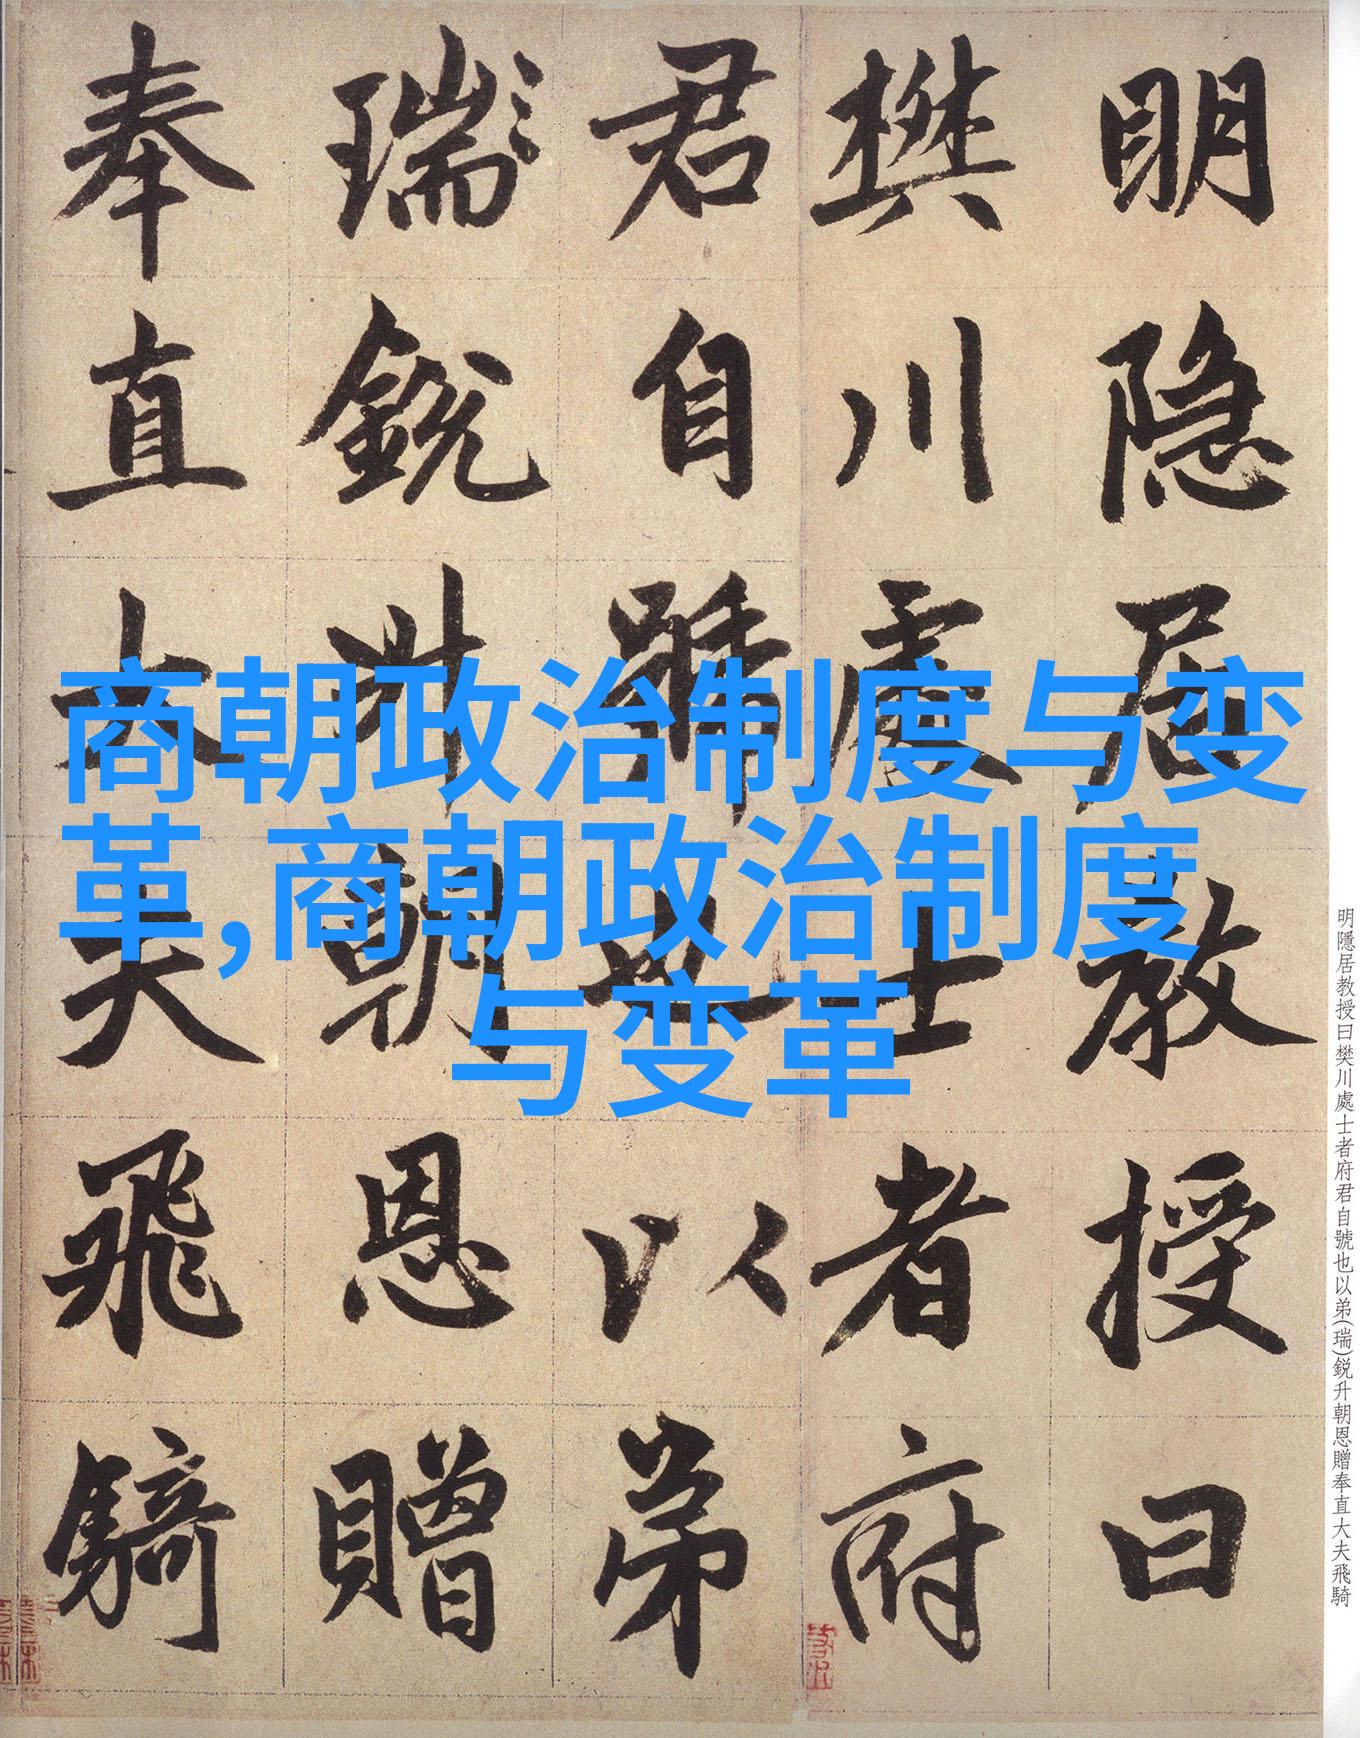 明隐居教授曰
樊川處士者府
君自號也以弟
瑞鋭升朝恩贈
奉直大夫飛騎
商朝政治制度与变
革,商朝政治制度
与变革
明隱居教授曰樊川處士者府君自號也以弟(瑞)鋭升朝恩贈奉直大夫飛騎